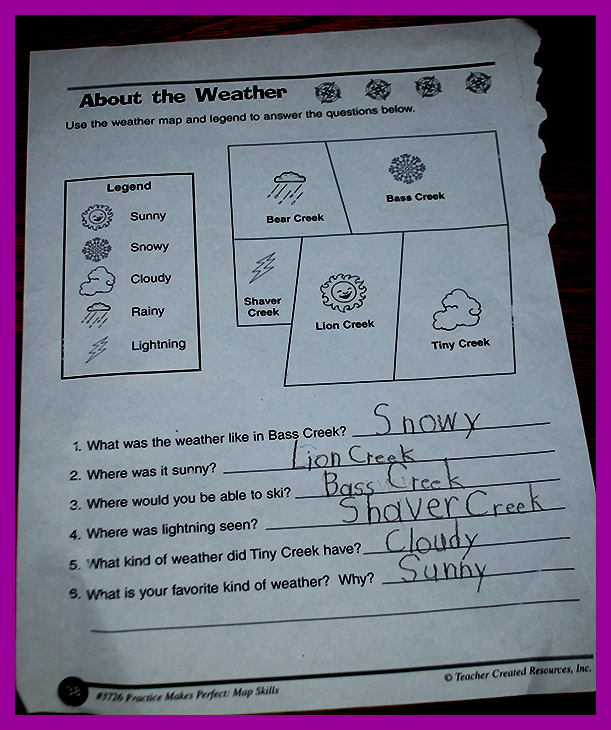 About the Weather
Use the weather map and legend to answer the questions below.
Legend
Sunny
Snowy
Cloudy
Rainy
Lightning
Bear Creek
Bass Creek
Shaver
Creek
Lion Creek
Tiny Creek
1. What was the weather like in Bass Creek? Snowy
2. Where was it sunny? Lion Creek
3. Where would you be able to ski? Bass Creek
4. Where was lightning seen? Shaver Creek
5. What kind of weather did Tiny Creek have? Cloudy
6. What is your favorite kind of weather? Why? Sunny
38 #3726 Practice Makes Perfect: Map Skills © Teacher Created Resources, Inc.